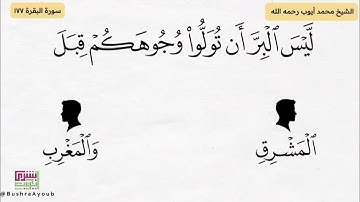 الشيخ محمد أيوب رحمه الله
سورة البقرة ١٧٧
لَّيْسَ ٱلْبِرَّ أَن تُوَلُّوا۟ وُجُوهَكُمْ قِبَلَ
ٱلْمَشْرِقِ
وَٱلْمَغْرِبِ
بشرى
@BushraAyoub